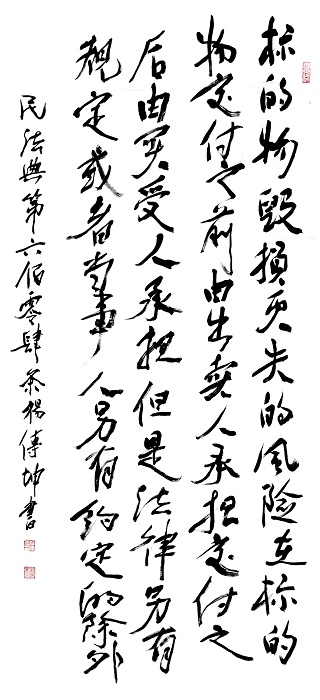 标的物毁损灭失的风险在标的
物交付之前由出卖人承担交付之
后由买受人承担但是法律另有
规定或者当事人另有约定的除外
民法典第六佰零肆条杨傳坤书